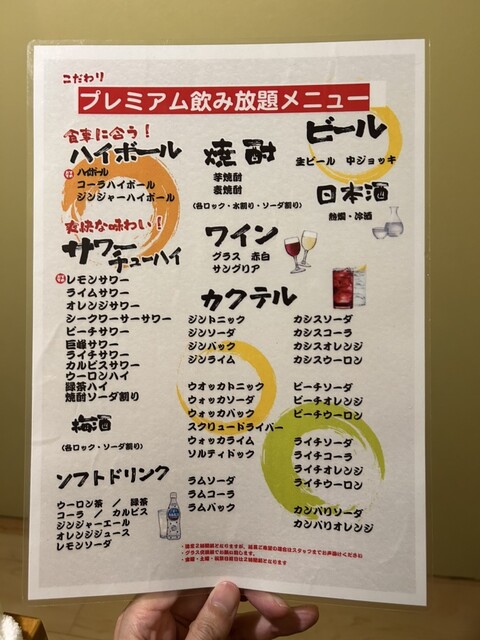 こだわり
プレミアム飲み放題メニュー
食事に合う！
ハイボール
ハイボール
コーラハイボール
ジンジャーハイボール
爽快な味わい！
サワー
チューハイ
レモンサワー
ライムサワー
オレンジサワー
シークワーサーサワー
ピーチサワー
巨峰サワー
ライチサワー
カルピスサワー
ウーロンハイ
緑茶ハイ
焼酎ソーダ割り
梅酒
（各ロック・ソーダ割り）
ソフトドリンク
ウーロン茶 / 緑茶
コーラ / カルピス
ジンジャーエール
オレンジジュース
レモンソーダ
焼酎
芋焼酎
麦焼酎
（各ロック・水割り・ソーダ割り）
ワイン
グラス 赤白
サングリア
ビール
生ビール 中ジョッキ
日本酒
熱燗・冷酒
カクテル
ジントニック
ジンソーダ
ジンバック
ジンライム
ウオッカトニック
ウォッカソーダ
ウォッカバック
スクリュードライバー
ウォッカライム
ソルティドック
ラムソーダ
ラムコーラ
ラムバック
カシスソーダ
カシスコーラ
カシスオレンジ
カシスウーロン
ピーチソーダ
ピーチオレンジ
ピーチウーロン
ライチソーダ
ライチコーラ
ライチオレンジ
ライチウーロン
カンパリソーダ
カンパリオレンジ
・グラス交換制でお願い致します。